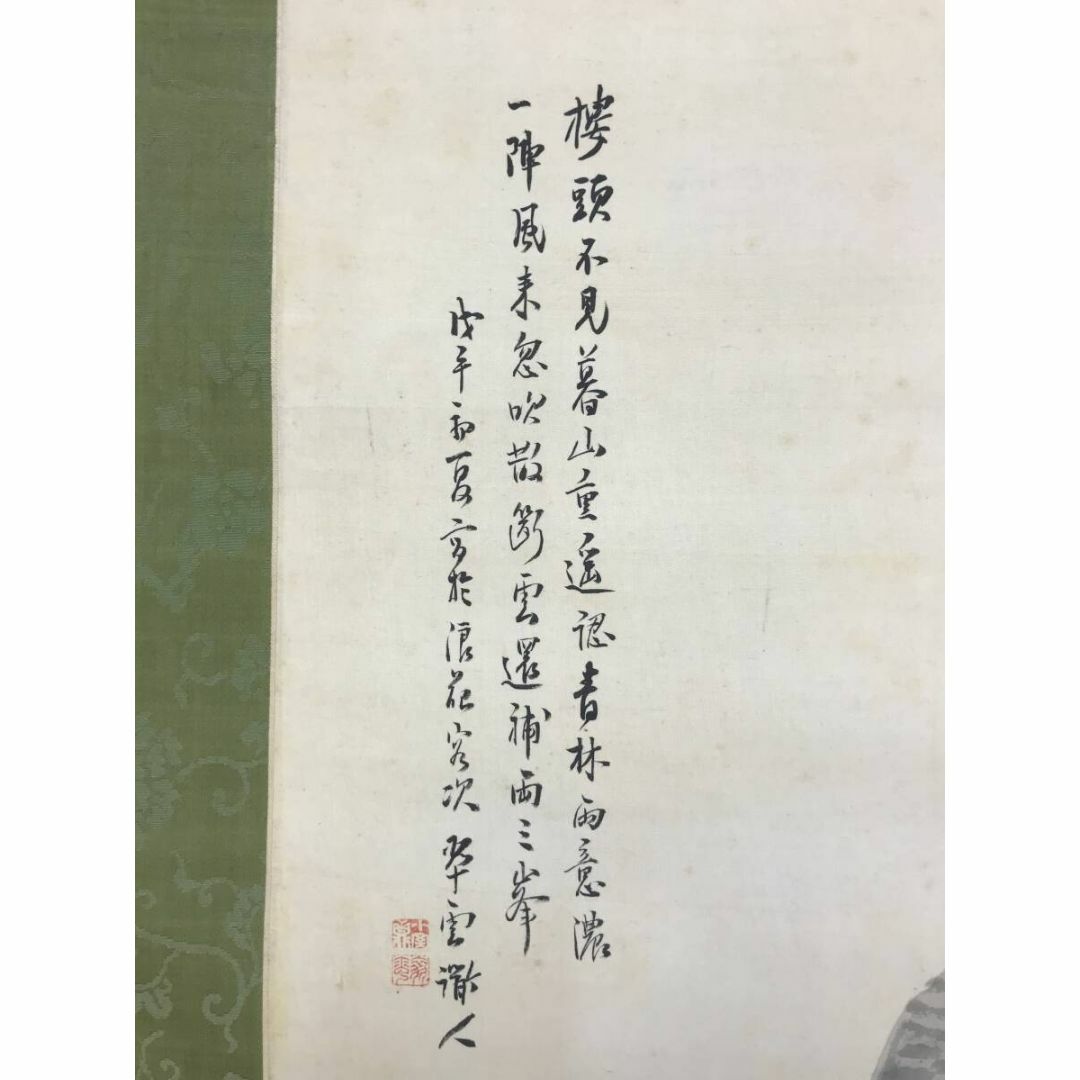 樓頭不見暮山重遥認青林雨意濃
一陣風来忽吹散斷雲還補両三峯
戊午初夏寫於浪花客次 翠雲 人